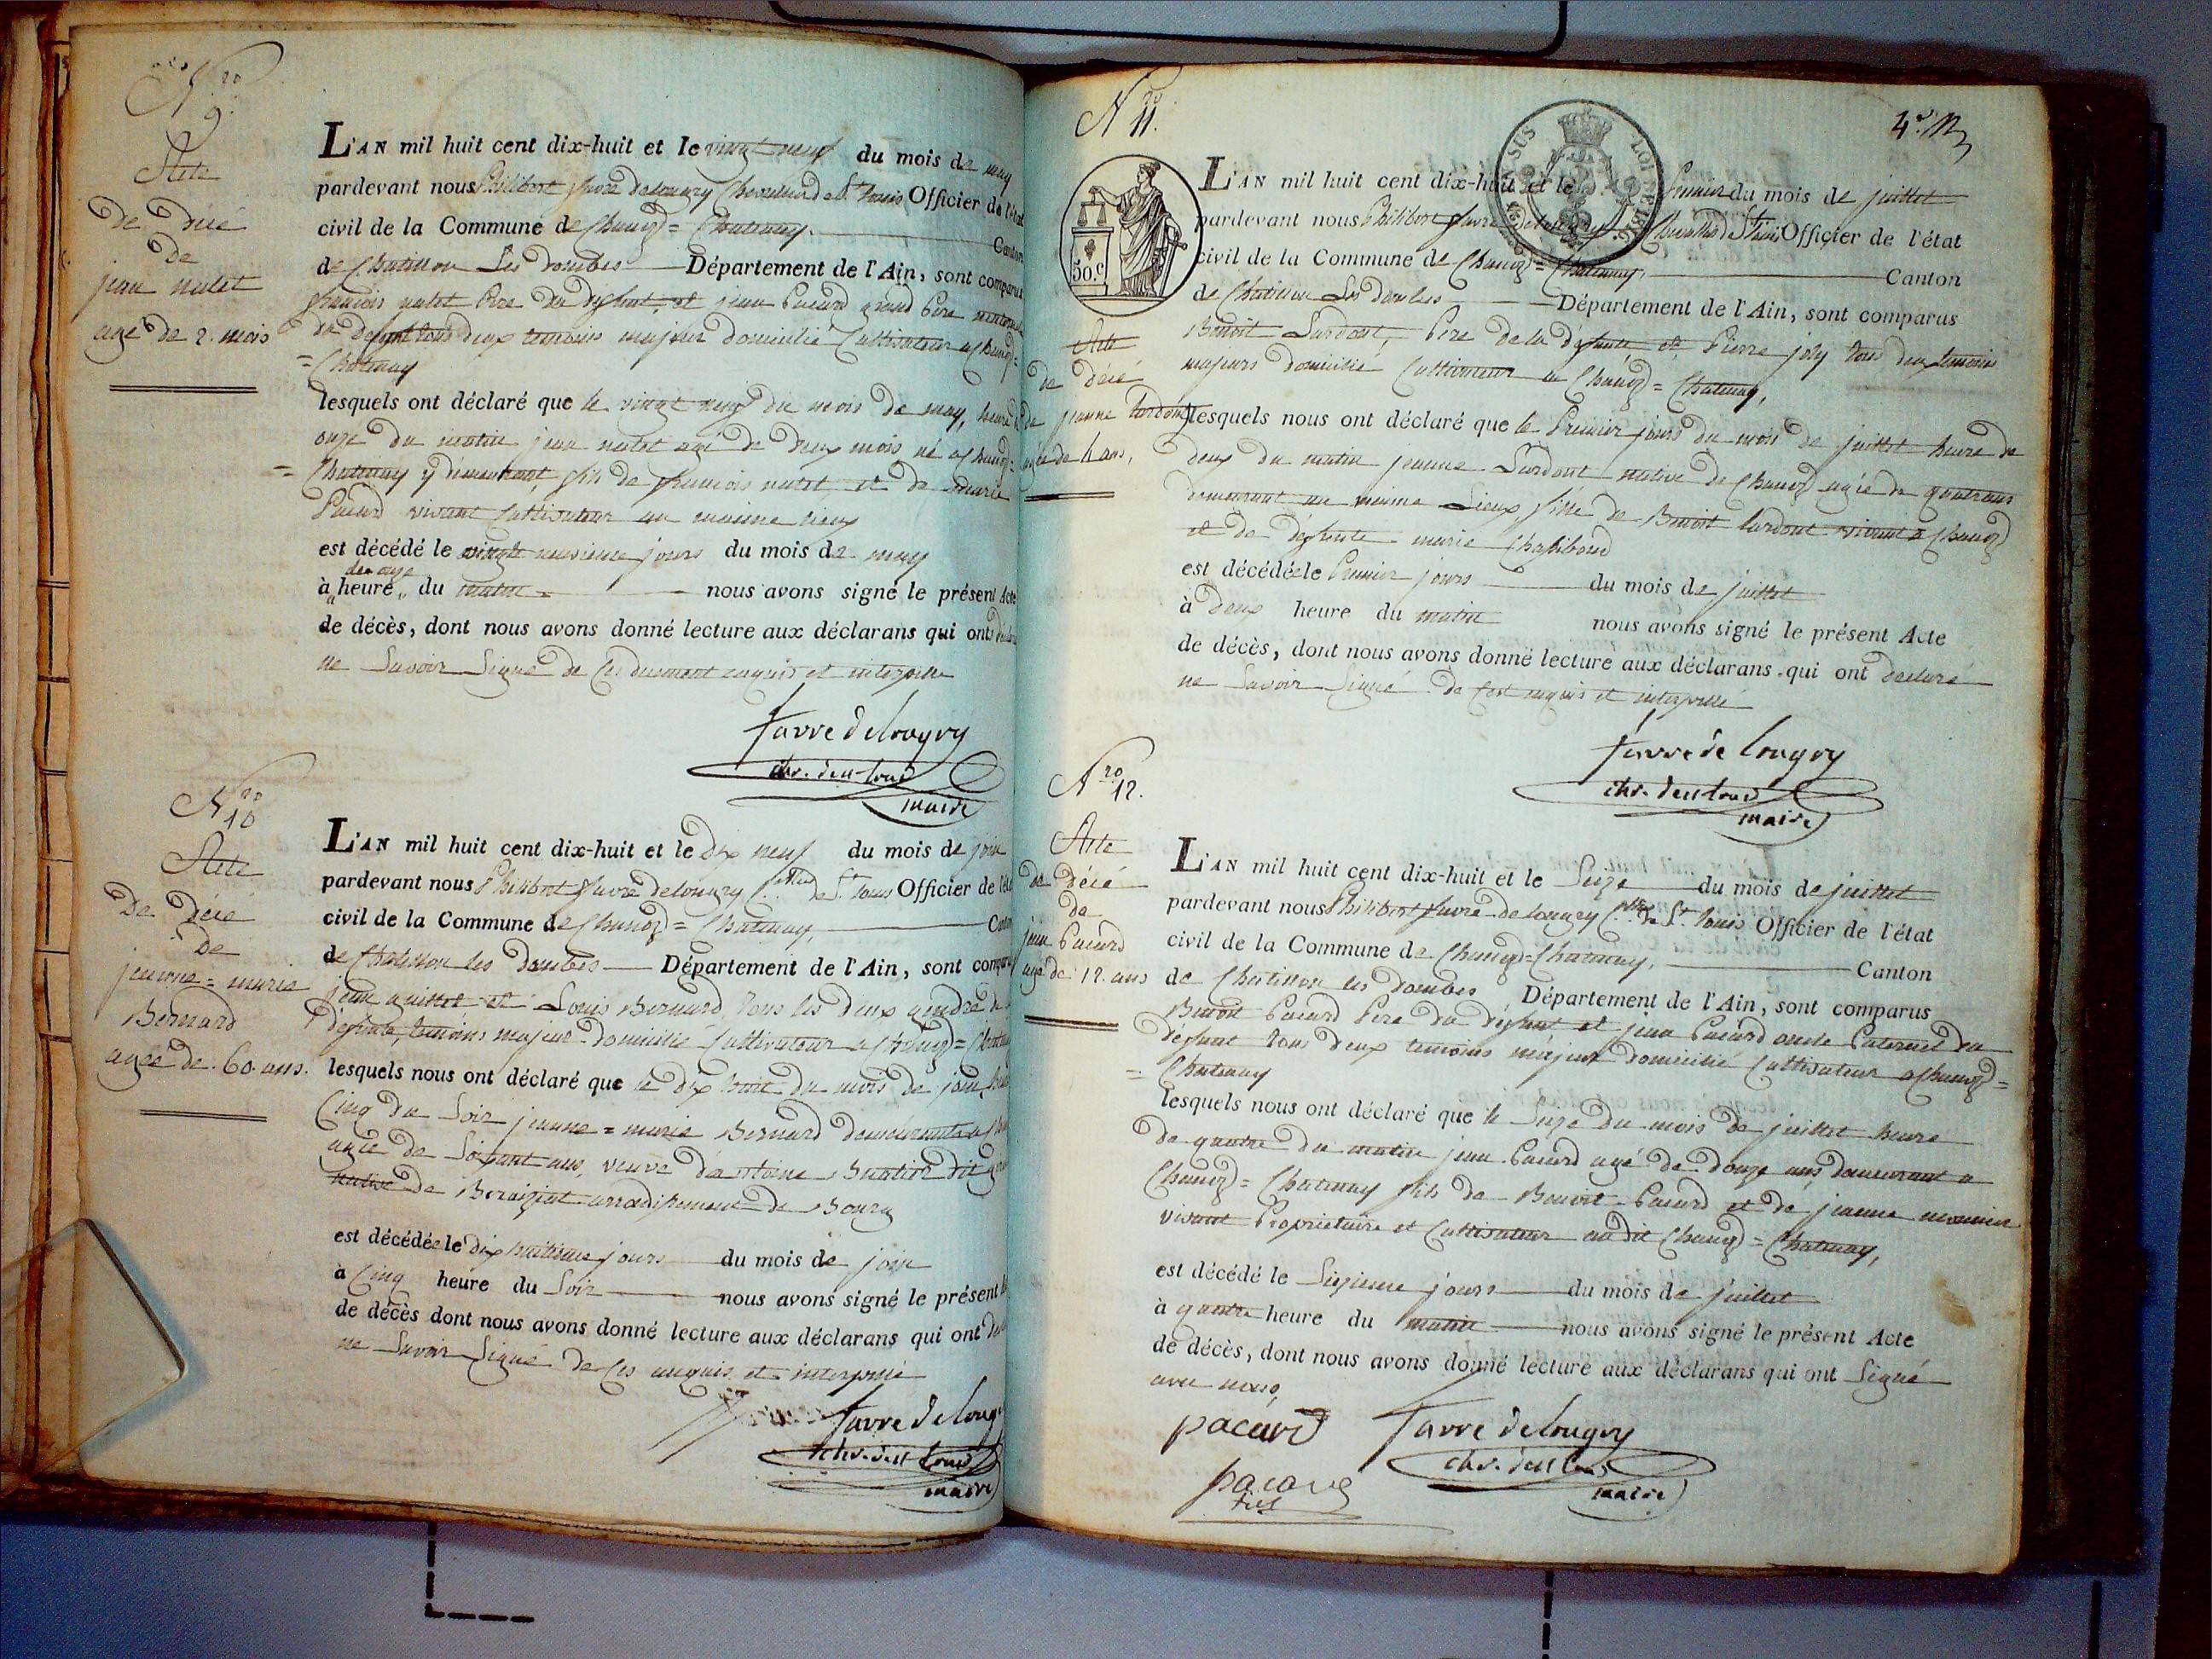 Nro 9.
Acte
de décé
de
jean natet
agé de 2. mois
L'AN mil huit cent dix-huit et le vingt neuf du mois de may
pardevant nous Philibert favre delongry Chevallier de St. Louis Officier de l'état
civil de la Commune de Chanoz = Chatenay. Canton
de Chatillon Les dombes Département de l'Ain, sont comparus
francois natet Pere du defunt, et jean Pacard grand Pere maternel
du defunt tous deux temoins majeur domicilié Cultivateur a Chanoz =
= Chatenay
lesquels ont déclaré que le vingt neuf du mois de may, heure de
onze du matin jean natet agé de deux mois né a Chanoz =
= Chatenay y démeurant, fils de francois natet, et de marie
Pacard vivant Cultivateur au maime lieux
est décédé le vingt neuvieme jours du mois de may
de onze
à heure du matin nous avons signé le présent Acte
de décès, dont nous avons donné lecture aux déclarans qui ont déclaré
ne Savoir Signé de Ces dument enquis et interpellé
favre delongry
chr. de st louis
maire
Nro 10
Acte
De Décé
De
jeanne = marie
Bernard
agée de. 60. ans.
L'AN mil huit cent dix-huit et le dix neuf du mois de join
pardevant nous Philibert favre delongry de St. Louis Officier de l'état
civil de la Commune de Chanoz = Chatenay, Canton
de Chatillon les dombes Département de l'Ain, sont comparus
jean guillot et Louis Bernard, tous les deux gendre de
défunte, temoins majeur domicilié Cultivateur a Chanoz = Chatenay
lesquels nous ont déclaré que le dix huit du mois de join,
Cinq du Soir jeanne = marie Bernard demeurante a
agée de Soixant ans, veuve d'antoine dit
native de Beraiziat arrondissement de Bourg
est décédée le dix huitieme jours du mois de join
à Cinq heure du Soir nous avons signé le présent
de décès dont nous avons donné lecture aux déclarans qui ont
ne Savoir Signé de Ces enquis et interpellé
favre delongry
chr. de st Louis
maire
Nro 11.
4e.
50.c
L'AN mil huit cent dix-huit et le Premier du mois de juillet
pardevant nous Philibert favre delongry Chevallier de St Louis Officier de l'état
civil de la Commune de Chanoz = Chatenay, Canton
de Chatillon Les dombes Département de l'Ain, sont comparus
Benoit Lardont, Pere de la défunte et Pierre joly tous deux temoins
majeurs domicilié Cultivateur a Chanoz = Chatenay,
Acte
de décé
de jeanne lardont
agée de 4 ans,
lesquels nous ont déclaré que le Premier jours du mois de juillet heure de
deux du matin jeanne Lardont native de Chanoz agée de quatre ans
demeurant au maime Lieux fille de Benoit lardont vivant a Chanoz
et de défunte marie Chapiboud
est décédée le Premier jours du mois de juillet
à deux heure du matin nous avons signé le présent Acte
de décès, dont nous avons donné lecture aux déclarans qui ont declaré
ne Savoir Signé de Cest enquis et interpellé
favre de longry
chr. de st louis
maire
Nro 12.
Acte
de décé
de
jean Pacard
agé de 12. ans
L'AN mil huit cent dix-huit et le Seize du mois de juillet
pardevant nous Philibert favre delongry de St. Louis Officier de l'état
civil de la Commune de Chanoz = Chatenay, Canton
de Chatillon les dombes Département de l'Ain, sont comparus
Benoit Pacard Pere du défunt et jean Pacard oncle Paternel du
défunt tous deux temoins majeur domicilié Cultivateur a Chanoz =
= Chatenay
lesquels nous ont déclaré que le Seize du mois de juillet heure
de quatre du matin jean Pacard agé de douze ans demeurant a
Chanoz = Chatenay fils de Benoit Pacard et de jeanne monnier
vivant Proprietaire et Cultivateur au dit Chanoz = Chatenay,
est décédé le Sizieme jours du mois de juillet
à quatre heure du matin nous avons signé le présent Acte
de décès, dont nous avons donné lecture aux déclarans qui ont Signé
avec nous,
pacard favre delongry
chr. de st louis
maire
pacard
fils